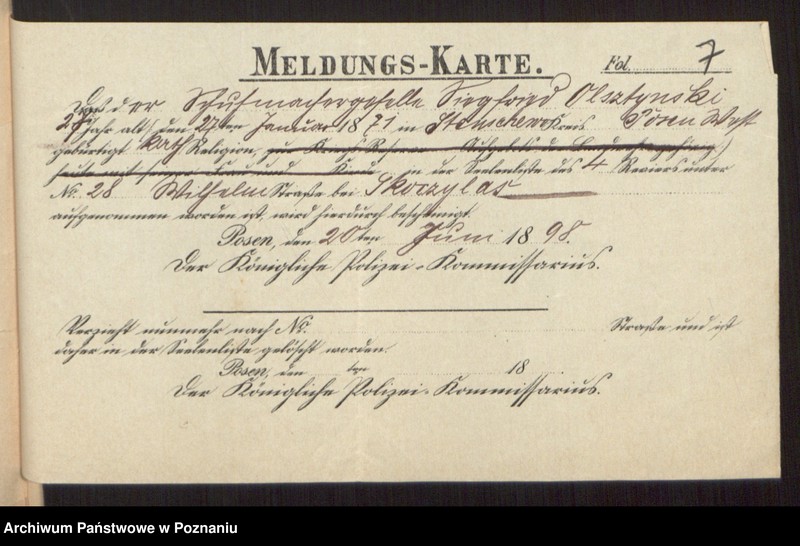 MELDUNGS-KARTE. Fol. 7
Daß der Schuhmachergeselle Siegfried Olsztynski
27 Jahr alt, den 27ten Januar 1871 in Stenschewo Kreis Posen West
gebürtigt kath Religion, zur Kriegs Reserve Aufgebots der Landwehr
seine mit seiner Frau und Kinde in der Seelenliste des 4 Reviers unter
No. 28 Wilhelm Straße bei Skorzylas
aufgenommen worden ist, wird hierdurch bescheinigt.
Posen, den 20ten Juni 1898.
Der Königliche Polizei-Kommissarius.
Verzieht nunmehr nach No. Straße und ist
daher in der Seelenliste gelöscht worden.
Posen, den ten 18
Der Königliche Polizei-Kommissarius.
Archiwum Państwowe w Poznaniu